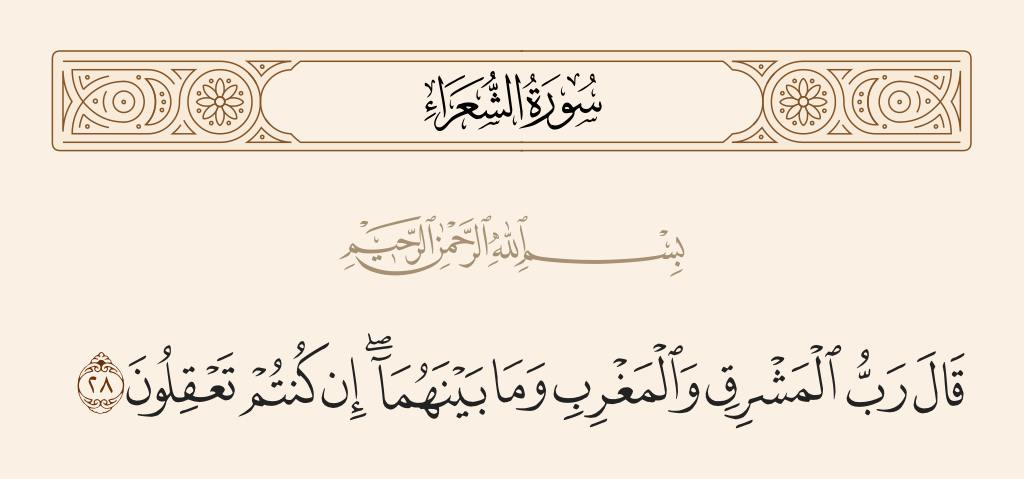 سُورَةُ الشُّعَرَاءِ
بِسْمِ ٱللَّهِ ٱلرَّحْمَٰنِ ٱلرَّحِيمِ
قَالَ رَبُّ ٱلْمَشْرِقِ وَٱلْمَغْرِبِ وَمَا بَيْنَهُمَآ ۖ إِن كُنتُمْ تَعْقِلُونَ ٢٨